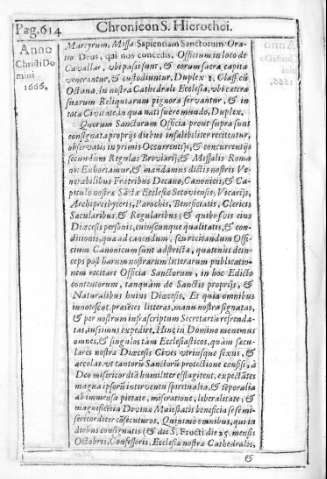 Pag.614
Chronicon S. Hierothei.
Anno
Christi Do
mini
1666.
Martyrum, Missa Sapientiam Sanctorum Ora-
tio Deus, qui nos concedis. Officium in loco de
Cavallar, ubi passi sunt, & eorum sacra capita
venerantur, & custodiuntur, Duplex 1. Class. cũ
Octava. In nostra Cathedrali Ecclesia, ubi extra
suarum Reliquiarum pignora servantur, & in
tota Civitate in qua nati fuere mundo, Duplex.
Quorum Sanctorum Officia prout supra sunt
consignata proprijs diebus infalibiliter recitentur,
observatis in primis Occurrentijs, & concurrentijs
secundum Regulas Breviarij, & Missalis Roma
ni: Exhortamur, & mandamus dictis nostris Ve-
nerabilibus Fratribus Decano, Canonicis, & Ca-
pitulo nostræ Ecclesiæ Segoviensis, Vicarijs,
Archipresbyteris, Parochis, Beneficiatis, Clericis
Sæcularibus & Regularibus; & quibusvis eius
Diœcesis personis, cuiuscumque qualitatis, & con-
ditionis, qua ad canendum, seu recitandum Offi-
cium Canonicum sunt adstrictæ, quatenus dein-
ceps post harum nostrarum litterarum publicatio-
nem recitare Officia Sanctorum, in hoc Edicto
contentorum, tanquàm de Sanctis proprijs, &
Naturalibus huius Diœcesis. Et quia omnibus
innotescat præsētes litteras, manu nostra signatas,
& per nostrum infrascriptum Secretariũ referenda-
tas, iussimus expedire. Hinc in Domino monemus
omnes, & singulos tàm Ecclesiasticos, quàm sæcu-
lares nostræ Diœcesis Cives utriusque sexus, &
accolas, ut tantorũ Sanctorũ protectione confisi, à
Deo misericordiã humiliter efflagitent, expectãtes
magna ipsorũ interventu spiritualia, & tẽporalia
ab immensa pietate, miseratione, liberalitate, &
magnificentia Divinæ Maiestatis beneficia se se mi-
sericorditer cõsecuturos. Quinimo omnibus, qui in
diebus consignatis (& die S. Fructi die 25. mensis
Octobris, Confessoris, Ecclesiæ nostræ Cathedralis,
&